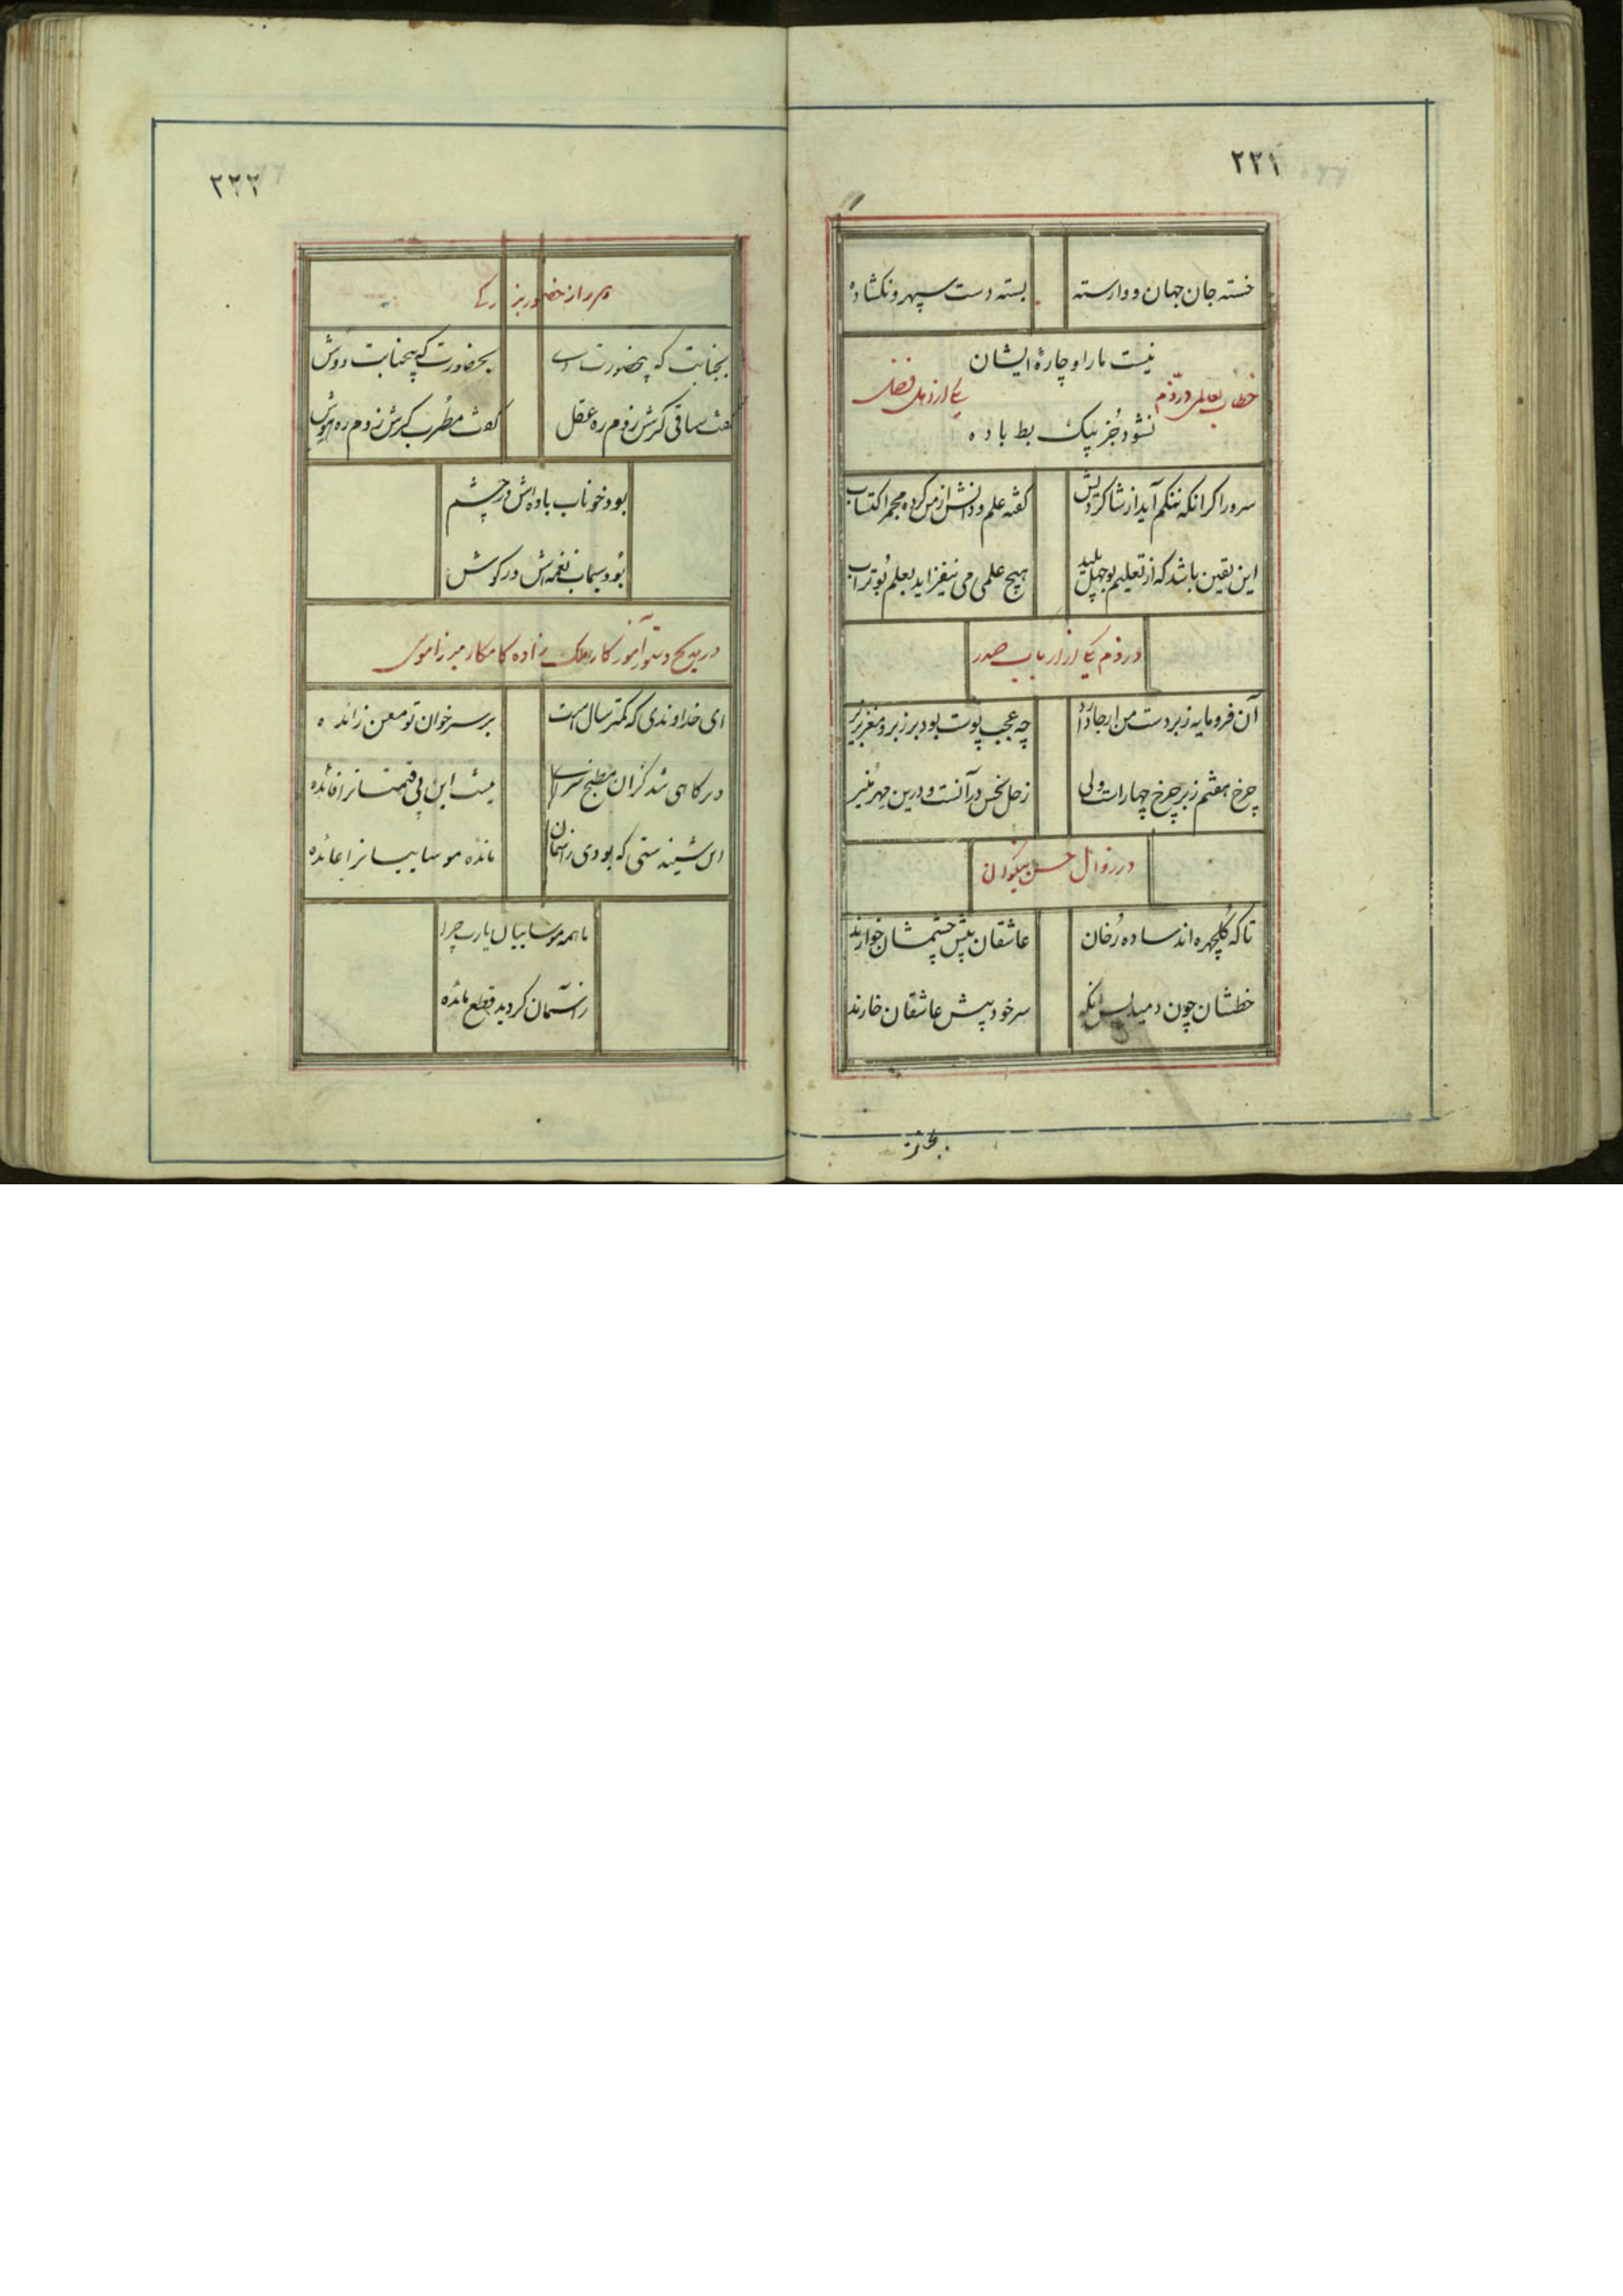 ٢٢١
خسته جان جهان و وارسته بسته دست سپهر و نکشاده
نیست ما را و چارهٔ ایشان
خطاب بعالمی در ذم یکی از اهل فضل
نشود جُز بپیک بط باده
سرورا کر انکه ننکم آید از شاکردیش کفته علم و دانش از من کرده مجمر اکتساب
این یقین باشد که از تعلیم بوجهل پلید هیچ علمی می نیفزاید بعلم بُوتراب
در ذم یکی از ارباب صدر
آن فرومایه زبردست من ار جا دارد چه عجب پوست بود بر زبر و مغز بزیر
چرخ هفتم زبر چرخ چهار است ولی زحل نحس در آنست و درین مهر مُنیر
در زوال حسن نیکوان
تا که کلچهره اند ساده رُخان عاشقان پیش چشمشان خوارند
خطشان چون دمید پس انکه سر خود پیش عاشقان خارند
بجنابت
٢٢٢
از حضور بزرکی
بجنابت که بیحضورت دی بحضورت که بیجنابت دوش
کفت ساقی کرش زدم ره عقل کفت مطرب کرش زدم ره هوش
بود خوناب باده اش در چشم
بود سیماب نغمه اش در کوش
در مدیح دستور آموزکار ملک زاده کامکار میرزا موسی
ای خداوندی که کمتر سال است بر سر خوان تو معن زائده
دیرکاهی شد کزان مطبخ سرای نیست این بی قیمتانرا فائده
این شنیدستی که بودی زاسمان مائده موساییانرا عائده
ما همه موساییان یارب چرا
زآسمان کردید قطع مائده